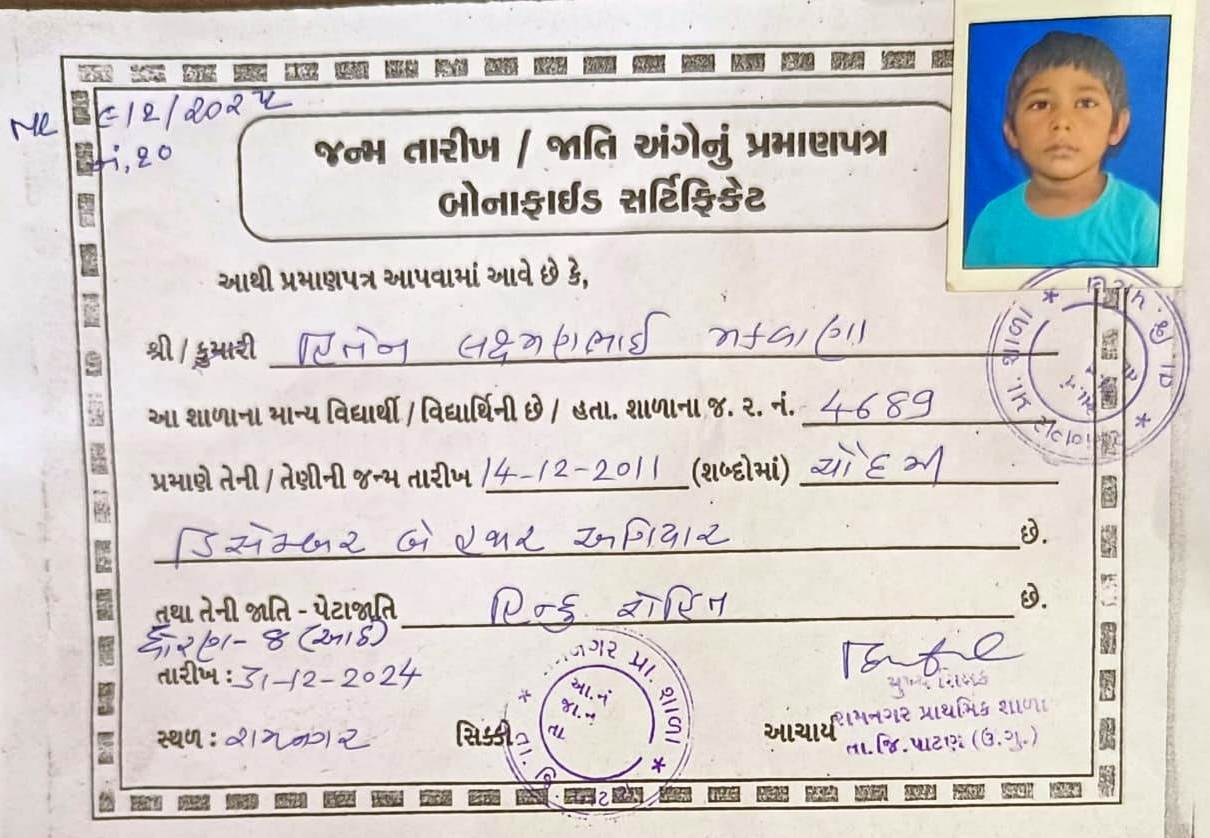 ૯/૨/૨૦૨૫
નં. ૨૦
જન્મ તારીખ / જાતિ અંગેનું પ્રમાણપત્ર
બોનાફાઈડ સર્ટિફિકેટ
આથી પ્રમાણપત્ર આપવામાં આવે છે કે,
શ્રી / કુમારી હિતેન લક્ષ્મણભાઈ મકવાણા
આ શાળાના માન્ય વિદ્યાર્થી / વિદ્યાર્થિની છે / હતા. શાળાના જ. ર. નં. 4689
પ્રમાણે તેની / તેણીની જન્મ તારીખ 14-12-2011 (શબ્દોમાં) ચૌદમી
ડિસેમ્બર બે હજાર અગિયાર છે.
તથા તેની જાતિ - પેટાજાતિ હિન્દુ રોહિત છે.
ધોરણ - ૪ (આઠ)
તારીખ : 31-12-2024
સ્થળ : રામનગર
સિક્કો
મનગર પ્રા. શાળા
આચાર્ય
મુખ્ય શિક્ષક
રામનગર પ્રાથમિક શાળા
તા.જિ.પાટણ (ઉ.ગુ.)